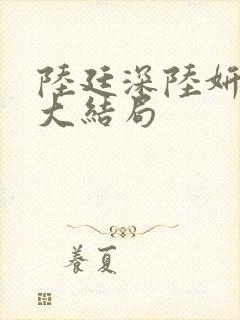 陸廷深陸妍
大結局
養夏